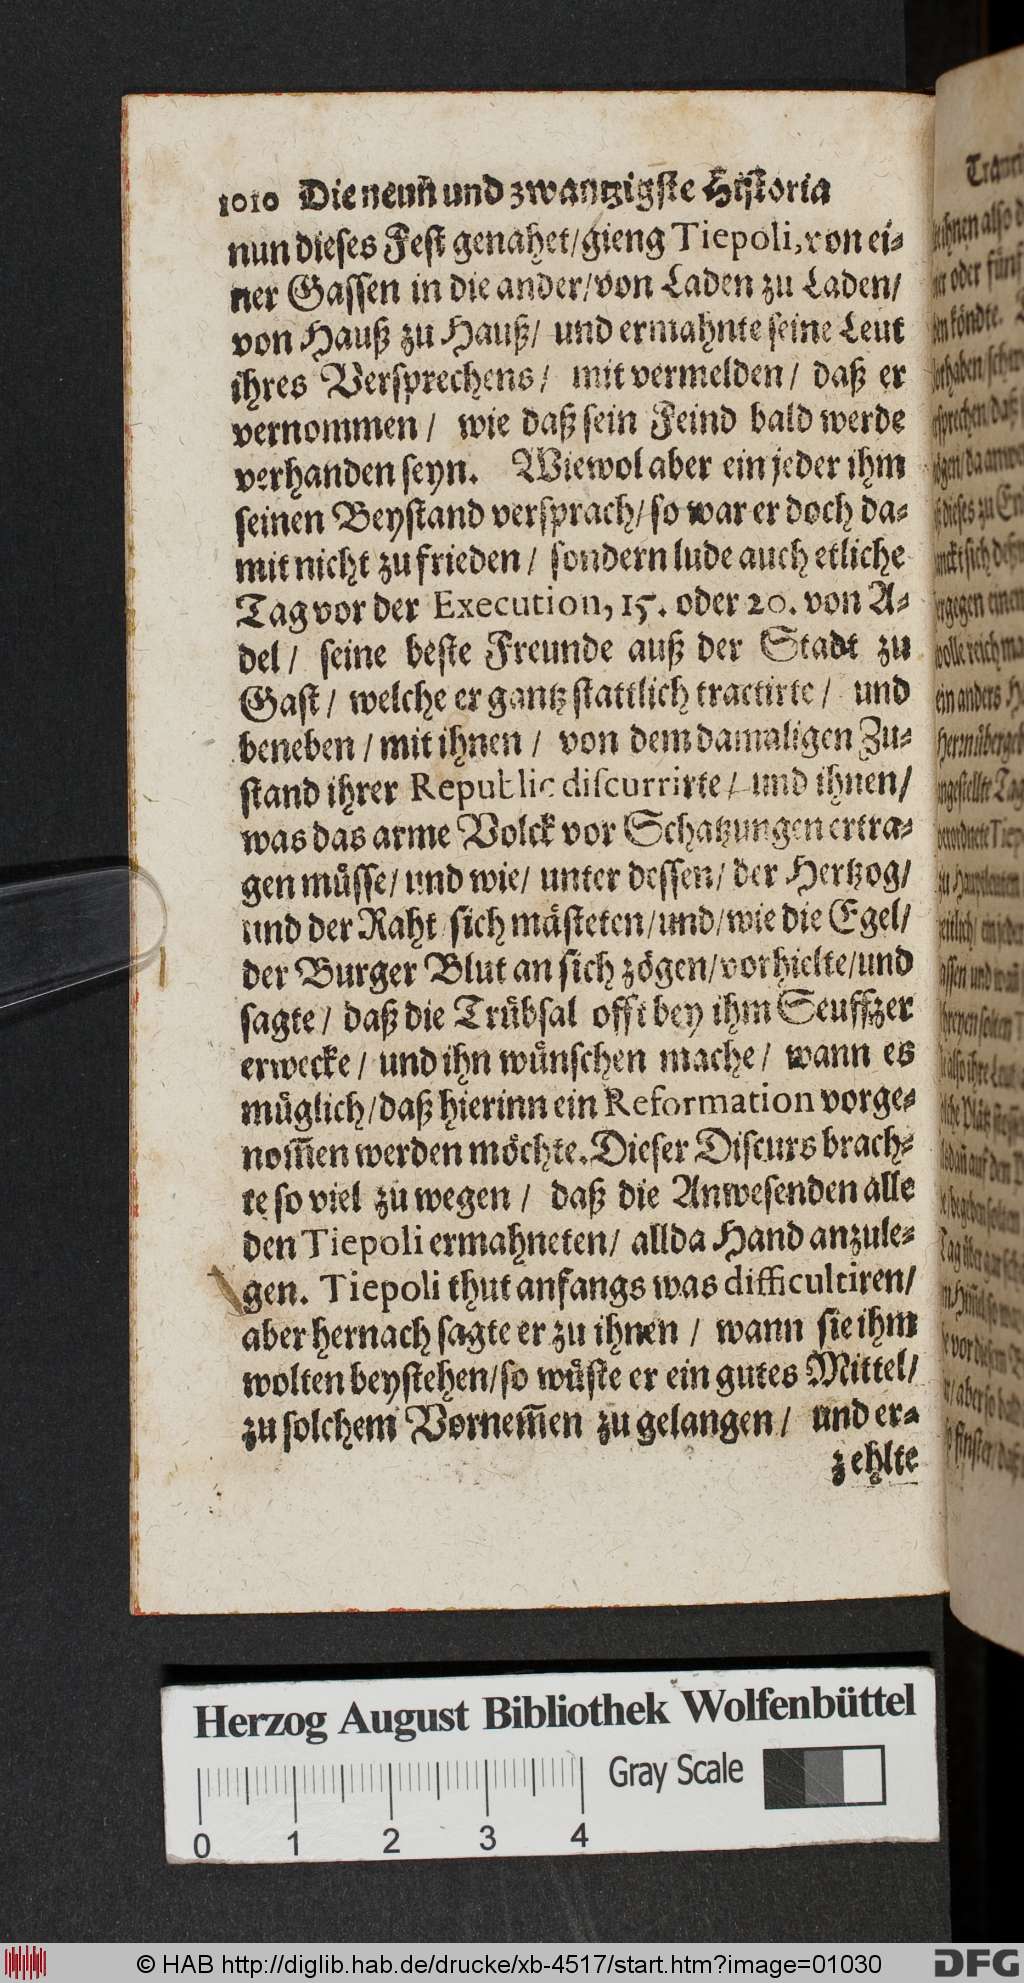 1010 Die neuñ und zwantzigste Historia
nun dieses Fest genahet/gieng Tiepoli, von ei-
ner Gassen in die ander/von Laden zu Laden/
von Hauß zu Hauß/ und ermahnte seine Leut
ihres Versprechens/ mit vermelden/ daß er
vernommen/ wie daß sein Feind bald werde
verhanden seyn. Wiewol aber ein jeder ihm
seinen Beystand versprach/so war er doch da-
mit nicht zu frieden/ sondern lude auch etliche
Tag vor der Execution, 15. oder 20. von A-
del/ seine beste Freunde auß der Stadt zu
Gast/ welche er gantz stattlich tractirte/ und
beneben/mit ihnen/ von dem damaligen Zu-
stand ihrer Republic discurrirte/ und ihnen/
was das arme Volck vor Schatzungen ertra-
gen müsse/und wie/ unter dessen/ der Hertzog/
und der Raht sich mästeten/und/wie die Egel/
der Burger Blut an sich zögen/vorhielte/und
sagte/ daß die Trübsal offt bey ihm Seuffzer
erwecke/ und ihn wünschen mache/ wann es
müglich/daß hierinn ein Reformation vorge-
nom̃en werden möchte. Dieser Discurs brach-
te so viel zu wegen/ daß die Anwesenden alle
den Tiepoli ermahneten/ allda Hand anzule-
gen. Tiepoli thut anfangs was difficultiren/
aber hernach sagte er zu ihnen/ wann sie ihm
wolten beystehen/so wüste er ein gutes Mittel/
zu solchem Vornem̃en zu gelangen/ und er-
zehlte
Herzog August Bibliothek Wolfenbüttel
Gray Scale
0 1 2 3 4
© HAB http://diglib.hab.de/drucke/xb-4517/start.htm?image=01030
DFG